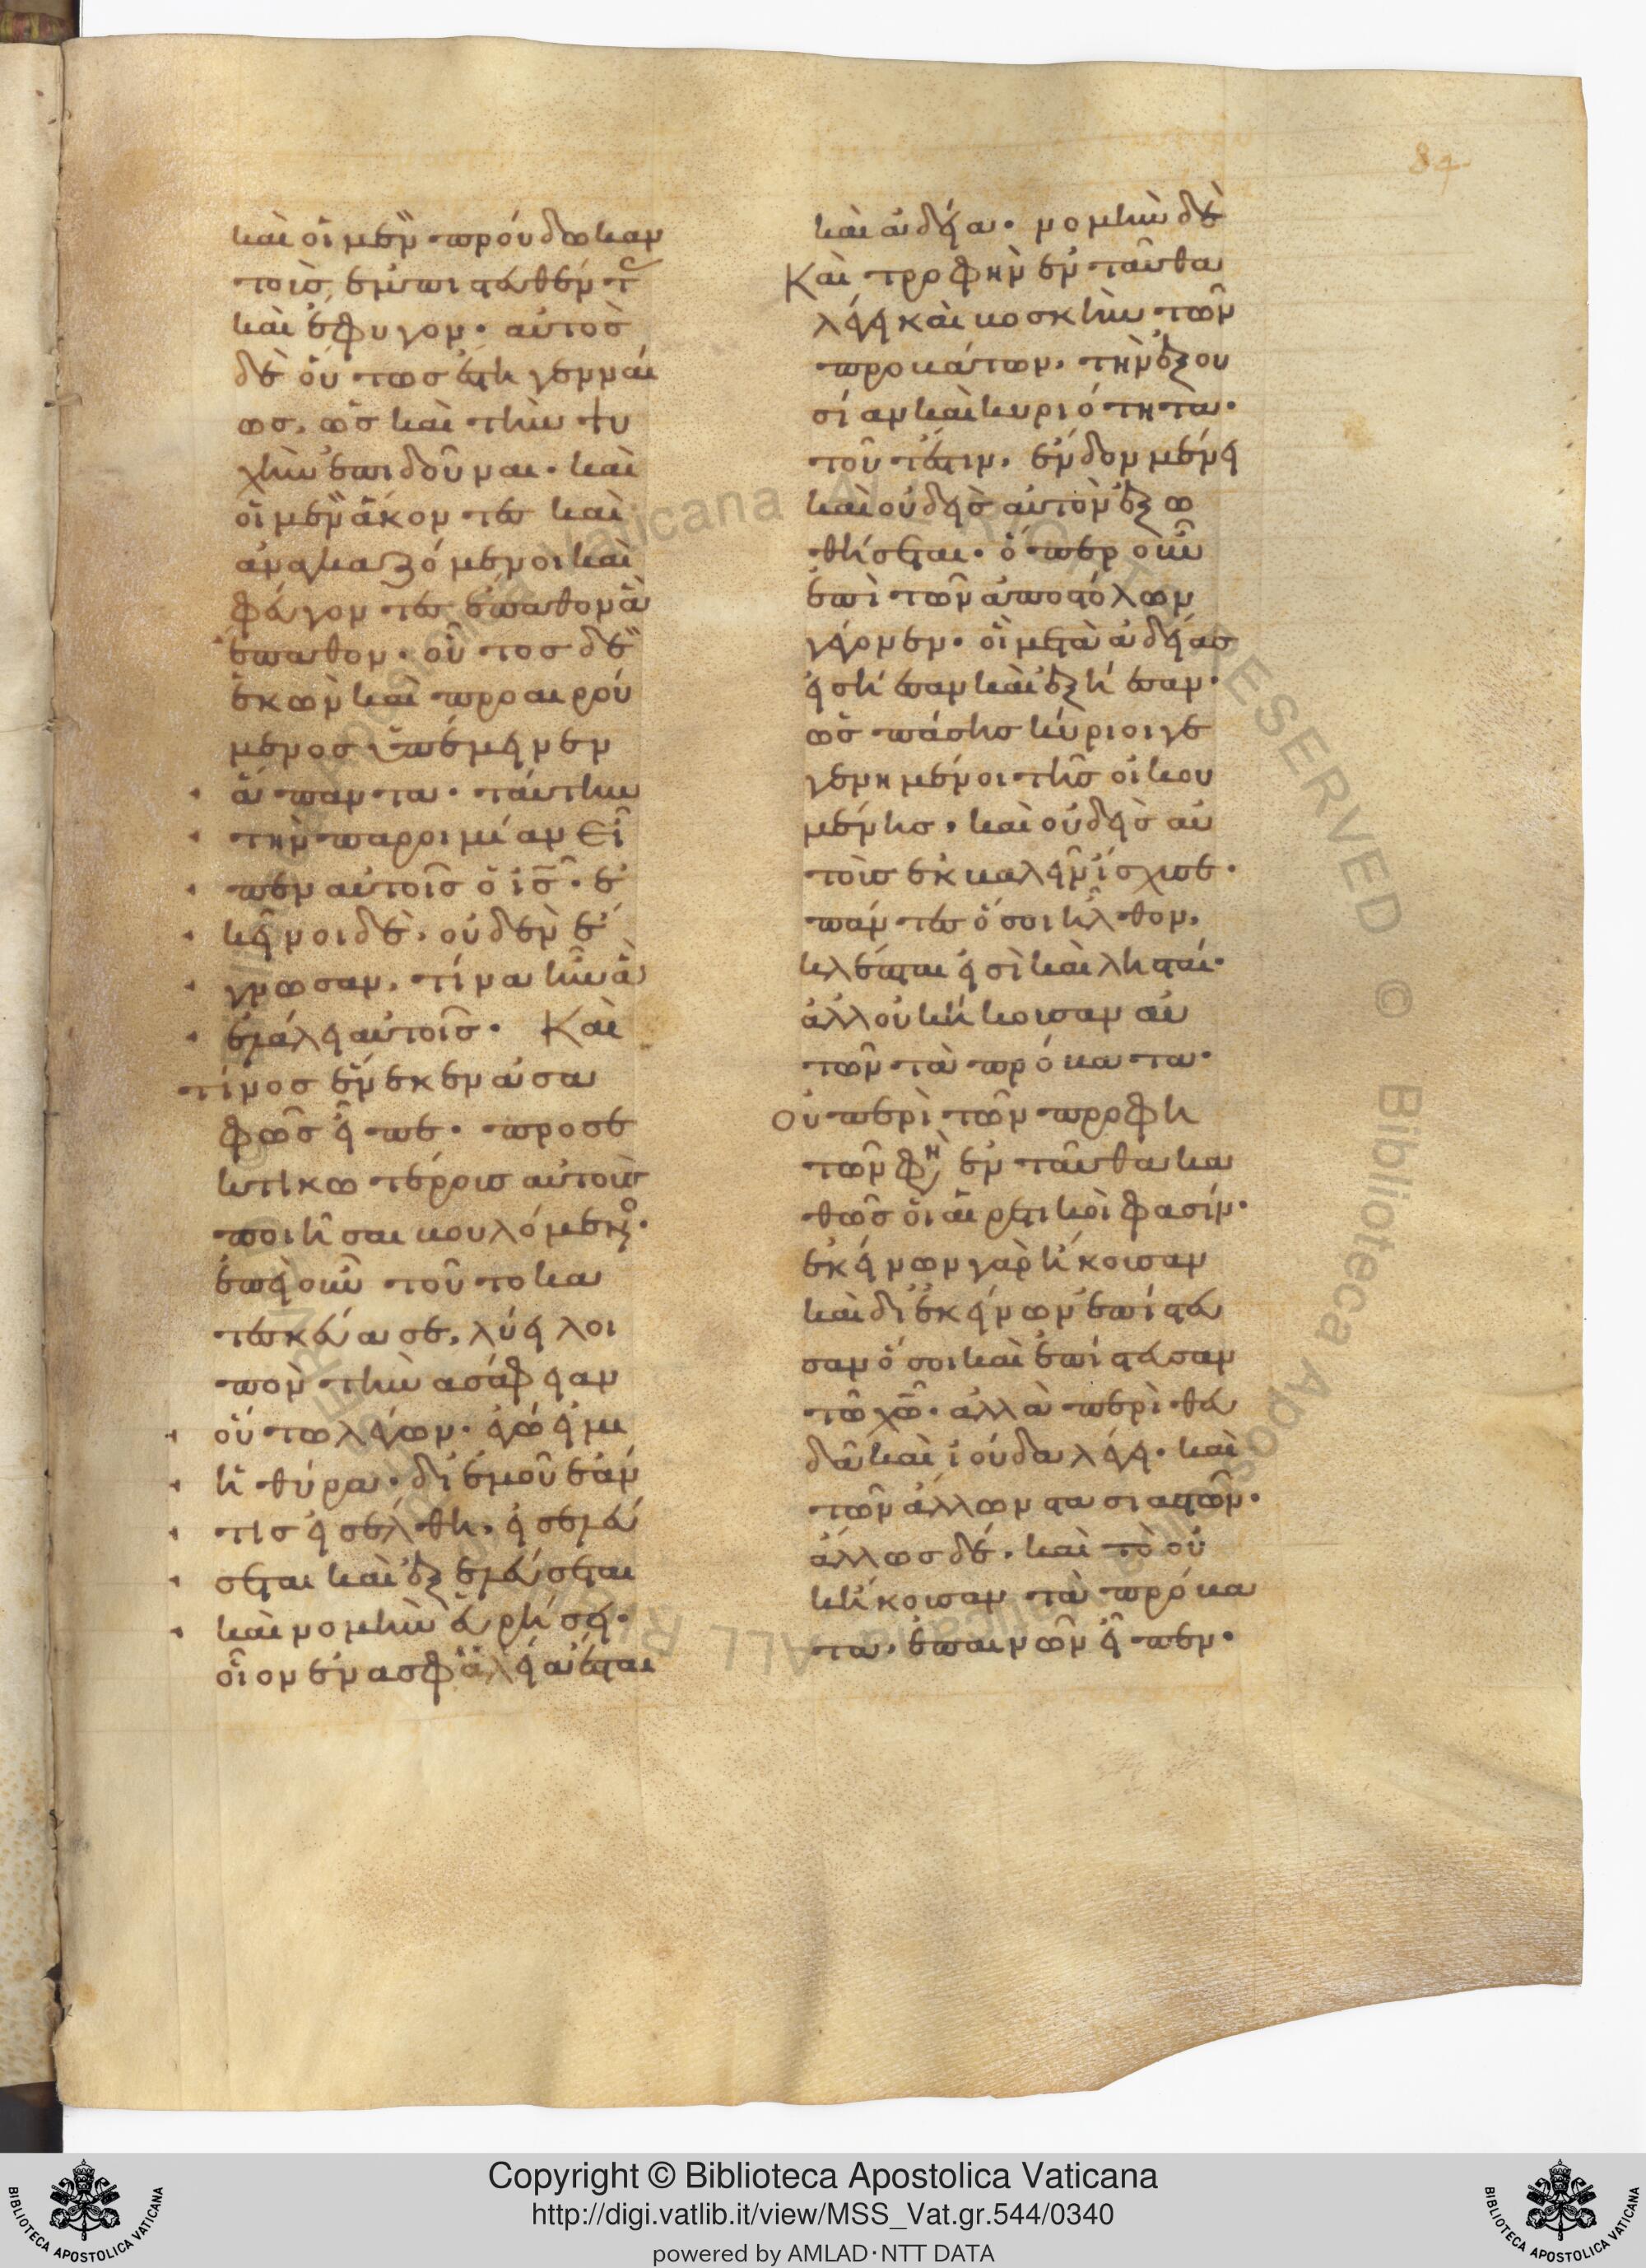 84
καὶ οἱ μὲν προύδωκαν
τοῖς ἐμπιστευθέντ
καὶ ἔφυγον· αὐτὸς
δὲ οὕτως ἔστη γενναί
ως, ὡς καὶ τὴν ψυ
χὴν ἐπιδοῦναι· καὶ
οἱ μὲν ἄκοντες καὶ
ἀναγκαζόμενοι καὶ
φεύγοντες ἔπαθον ἃ
ἔπαθον· οὗτος δὲ
ἑκὼν καὶ προαιρού
μενος ὑπέμεινεν
ἅπαντα· ταύτην
τὴν παροιμίαν εἶ
πεν αὐτοῖς ὁ ις· ἐ
κεῖνοι δὲ, οὐδὲν ἔ
γνωσαν, τίνα ἦν ἃ
ἐλάλει αὐτοῖς· Καὶ
τίνος ἕνεκεν ἀσα
φῶς εἶπε· προσε
κτικωτέροις αὐτοὺς
ποιῆσαι βουλόμενος·
ἐπεὶ οὖν τοῦτο κα
τεσκεύασε, λύει λοι
πὸν τὴν ἀσάφειαν
οὕτω λέγων· ἐγώ εἰμι
ἡ θύρα· δι' ἐμοῦ ἐάν
τις εἰσέλθη, εἰσελεύ
σεται καὶ ἐξελεύσεται
καὶ νομὴν εὑρήσει·
οἷον ἐν ἀσφαλεία ἔσται
καὶ ἀδεία· νομὴν δὲ
Καὶ τροφὴν ἐνταῦθα
λέγει καὶ βοσκὴν τῶν
προβάτων, τὴν ἐξου
σίαν καὶ κυριότητα·
τουτέστιν, ἔνδον μένει
καὶ οὐδεὶς αὐτὸν ἐξω
θήσεται· ὅπερ οὖν
ἐπὶ τῶν ἀποστόλων
γέγονεν· οἳ μετὰ ἀδείας
εἰσήεσαν καὶ ἐξήεσαν·
ὡς πάσης κύριοι γε
γενημένοι τῆς οἰκου
μένης, καὶ οὐδεὶς αὐ
τοὺς ἐκβαλεῖν ἴσχυσε·
πάντες ὅσοι ἦλθον,
κλέπται εἰσὶ καὶ λησταί·
ἀλλ' οὐκ ἤκουσαν αὐ
τῶν τὰ πρόβατα·
οὐ περὶ τῶν προφη
τῶν φη ἐνταῦθα κα
θὼς οἱ αἱρετικοὶ φασίν·
ἐκείνων γὰρ ἤκουσαν
καὶ δι' ἐκείνων ἐπίστευ
σαν ὅσοι καὶ ἐπίστευσαν
τῶ χω· ἀλλὰ περὶ θευ
δᾶ καὶ ἰούδα λέγει· καὶ
τῶν ἄλλων στασιαστῶν·
ἄλλως δὲ, καὶ τὸ οὐ
κ ἤκουσαν τὰ πρόβα
τα, ἐπαινῶν εἶπεν·
Copyright © Biblioteca Apostolica Vaticana
http://digi.vatlib.it/view/MSS_Vat.gr.544/0340
powered by AMLAD·NTT DATA
BIBLIOTECA APOSTOLICA VATICANA
BIBLIOTECA APOSTOLICA VATICANA